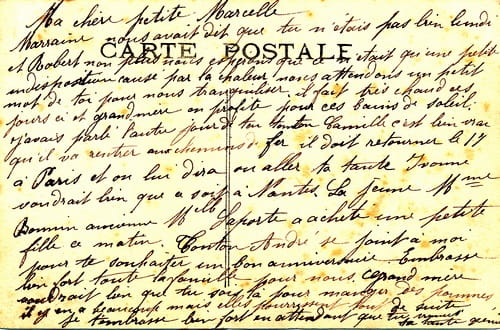 Ma chère petite Marcelle
Marraine nous avait dit que tu n'étais pas bien lundi
CARTE POSTALE
et Robert non plus nous espérons que ce n'était qu'une petite
indisposition causée par la chaleur nous attendons un petit
mot de toi pour nous tranquiliser, il fait très chaud ces
jours ci et grand mère en profite pour ces bains de soleil
j'avais parlé l'autre jour de ton tonton Camille c'est bien vrai
qu'il va rentrer aux chemins de fer il doit retourner le 17
à Paris et on lui dira où aller ta tante Yvonne
voudrait bien que ce soit à Nantes. La jeune Mme
Bonnin ancienne Mlle Laporte a acheté une petite
fille ce matin. Tonton André se joint à moi
pour te souhaiter un bon anniversaire Embrasse
bien fort toute la famille pour nous. Grand mère
voudrait bien que tu sois là pour manger des pommes
il y en a beaucoup mais elles pourrissent tout de suite
Je t'embrasse bien fort en attendant que tu viennes
ta tante